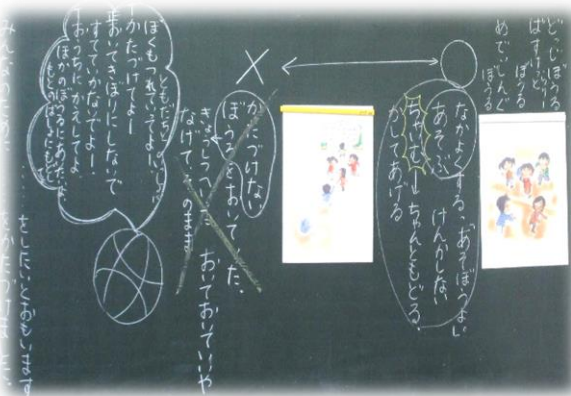 どっじぼうる
ばすけっと
ぼうる
めでぃしんぐ
ぼうる
○
なかよくする。あそぼうよ。
あそぶ
けんかしない
ちゃいむ→ちゃんともどる。
かしてあげる
×
かたづけない
ぼうるをおいていった。
きょうしつへ
おいておいていいや
なげて
そのまま
ともだちと
ぼくもつれていってよー。
かたづけてよー
おいてきぼりにしないで
すてていかないでよー
おうちにかえしてよ
ほかのぼうるにあいたいよ
みんなのために
をしたいとおもいます